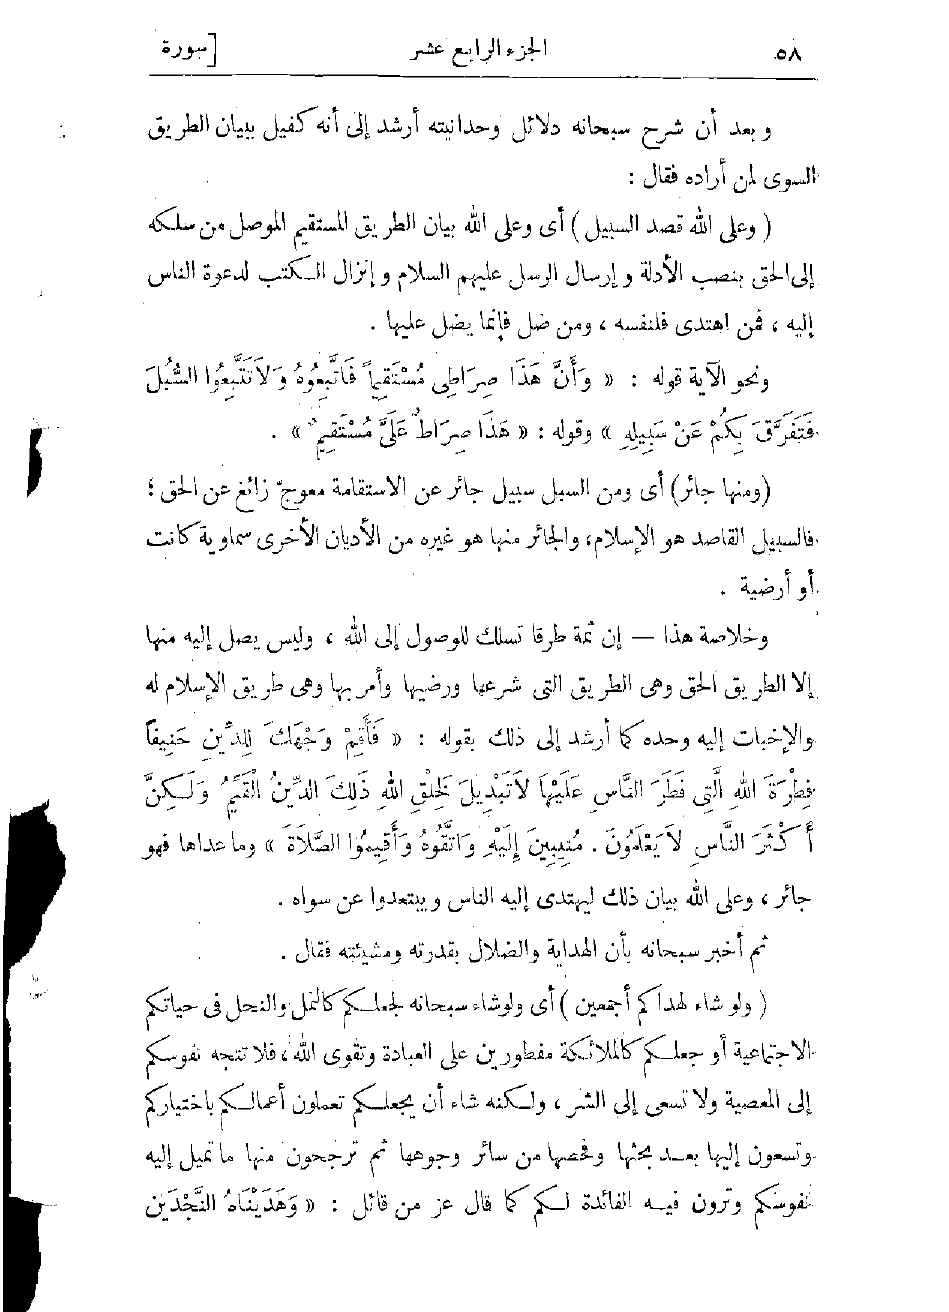 ٥٨ الجزء الرابع عشر [سورة
وبعد أن شرح سبحانه دلائل وحدانيته أرشد إلى أنه كفيل ببيان الطريق
السوى لمن أراده فقال :
( وعلى الله قصد السبيل ) أى وعلى الله بيان الطريق المستقيم الموصل من سلكه
إلى الحق بنصب الأدلة وإرسال الرسل عليهم السلام وإنزال الكتب لدعوة الناس
إليه ، فمن اهتدى فلنفسه ، ومن ضل فإنما يضل عليها .
ونحو الآية قوله : « وَأَنَّ هَذَا صِرَاطِى مُسْتَقِيماً فَاتَّبِعُوهُ وَلاَ تَتَّبِعُوا السُّبُلَ
فَتَفَرَّقَ بِكُمْ عَنْ سَبِيلِهِ » وقوله : « هَذَا صِرَاطٌ عَلَىَّ مُسْتَقِيمٌ » .
(ومنها جائر) أى ومن السبل سبيل جائر عن الاستقامة معوجّ زائغ عن الحق ؛
فالسبيل القاصد هو الإسلام، والجائر منها هو غيره من الأديان الأخرى سماوية كانت
أو أرضية .
وخلاصة هذا — إن ثمة طرقا تسلك للوصول إلى الله ، وليس يصل إليه منها
إلا الطريق الحق وهى الطريق التى شرعها ورضيها وأمر بها وهى طريق الإسلام له
والإخبات إليه وحده كما أرشد إلى ذلك بقوله : « فَأَقِمْ وَجْهَكَ لِلدِّينِ حَنِيفاً
فِطْرَةَ اللهِ الَّتِى فَطَرَ النَّاسَ عَلَيْهَا لاَ تَبْدِيلَ لِخَلْقِ اللهِ ذَلِكَ الدِّينُ الْقَيِّمُ وَلَكِنَّ
أَكْثَرَ النَّاسِ لاَ يَعْلَمُونَ . مُنِيبِينَ إِلَيْهِ وَاتَّقُوهُ وَأَقِيمُوا الصَّلاَةَ » وما عداها فهو
جائر ، وعلى الله بيان ذلك ليهتدى إليه الناس ويبتعدوا عن سواه .
ثم أخبر سبحانه بأن الهداية والضلال بقدرته ومشيئته فقال .
( ولو شاء لهداكم أجمعين ) أى ولو شاء سبحانه لجعلكم كالنمل والنحل فى حياتكم
الاجتماعية أو جعلكم كالملائكة مفطورين على العبادة وتقوى الله ، فلا تتجه نفوسكم
إلى المعصية ولا تسعى إلى الشر ، ولكنه شاء أن يجعلكم تعملون أعمالكم باختياركم
وتسعون إليها بعد بحثها وفحصها من سائر وجوهها ثم ترجحون منها ما تميل إليه
نفوسكم وترون فيه الفائدة لكم كما قال عز من قائل : « وَهَدَيْنَاهُ النَّجْدَيْنِ